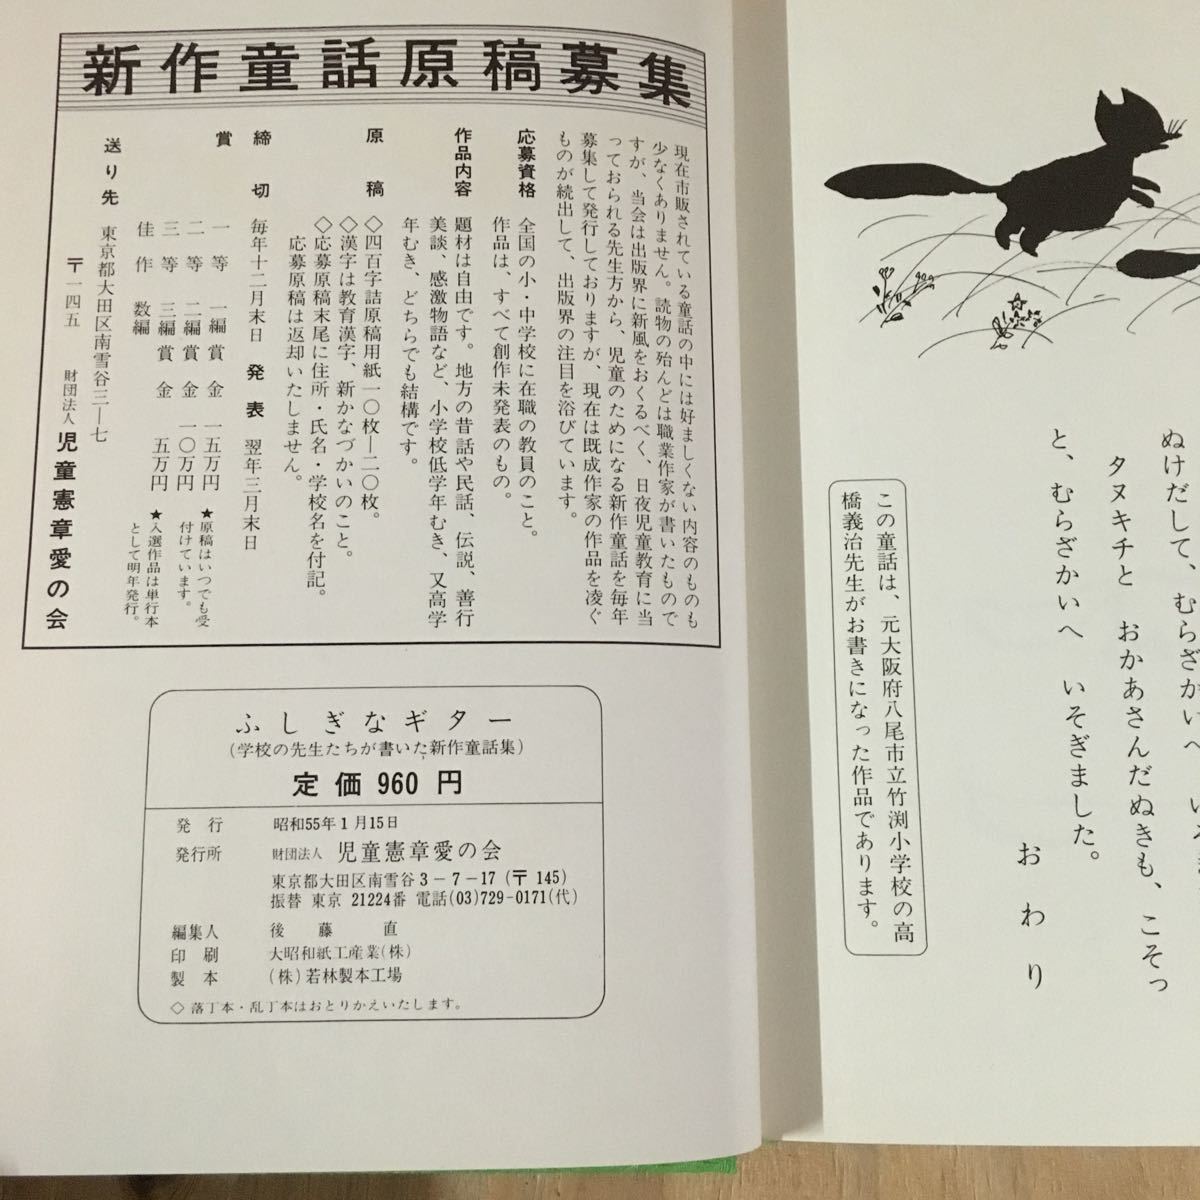 ぬけだして、むらざかいへ
タヌキチと　おかあさんだぬきも、こそっ
と、むらざかいへ　いそぎました。
おわり
この童話は、元大阪府八尾市立竹渕小学校の高
橋義治先生がお書きになった作品であります。
新作童話原稿募集
現在市販されている童話の中には好ましくない内容のものも
少なくありません。読物の殆んどは職業作家が書いたもので
すが、当会は出版界に新風をおくるべく、日夜児童教育に当
っておられる先生方から、児童のためになる新作童話を毎年
募集して発行しておりますが、現在は既成作家の作品を凌ぐ
ものが続出して、出版界の注目を浴びています。
応募資格　全国の小・中学校に在職の教員のこと。
作品は、すべて創作未発表のもの。
作品内容　題材は自由です。地方の昔話や民話、伝説、善行
美談、感激物語など、小学校低学年むき、又高学
年むき、どちらでも結構です。
原稿　◇四百字詰原稿用紙一〇枚―二〇枚。
◇漢字は教育漢字、新かなづかいのこと。
◇応募原稿末尾に住所・氏名・学校名を付記。
応募原稿は返却いたしません。
締切　毎年十二月末日　発表　翌年三月末日
賞　一等　一編賞金　一五万円
二等　二編賞金　一〇万円
三等　三編賞金　五万円
佳作　数編
★原稿はいつでも受
付けています。
★入選作品は単行本
として明年発行。
送り先　東京都大田区南雪谷三―七
〒一四五　財団法人　児童憲章愛の会
ふしぎなギター
(学校の先生たちが書いた新作童話集)
定価 960 円
発行　昭和55年1月15日
発行所　財団法人　児童憲章愛の会
東京都大田区南雪谷3－7－17(〒145)
振替 東京 21224番 電話(03)729-0171(代)
編集人　後藤　直
印刷　大昭和紙工産業(株)
製本　(株)若林製本工場
◇落丁本・乱丁本はおとりかえいたします。